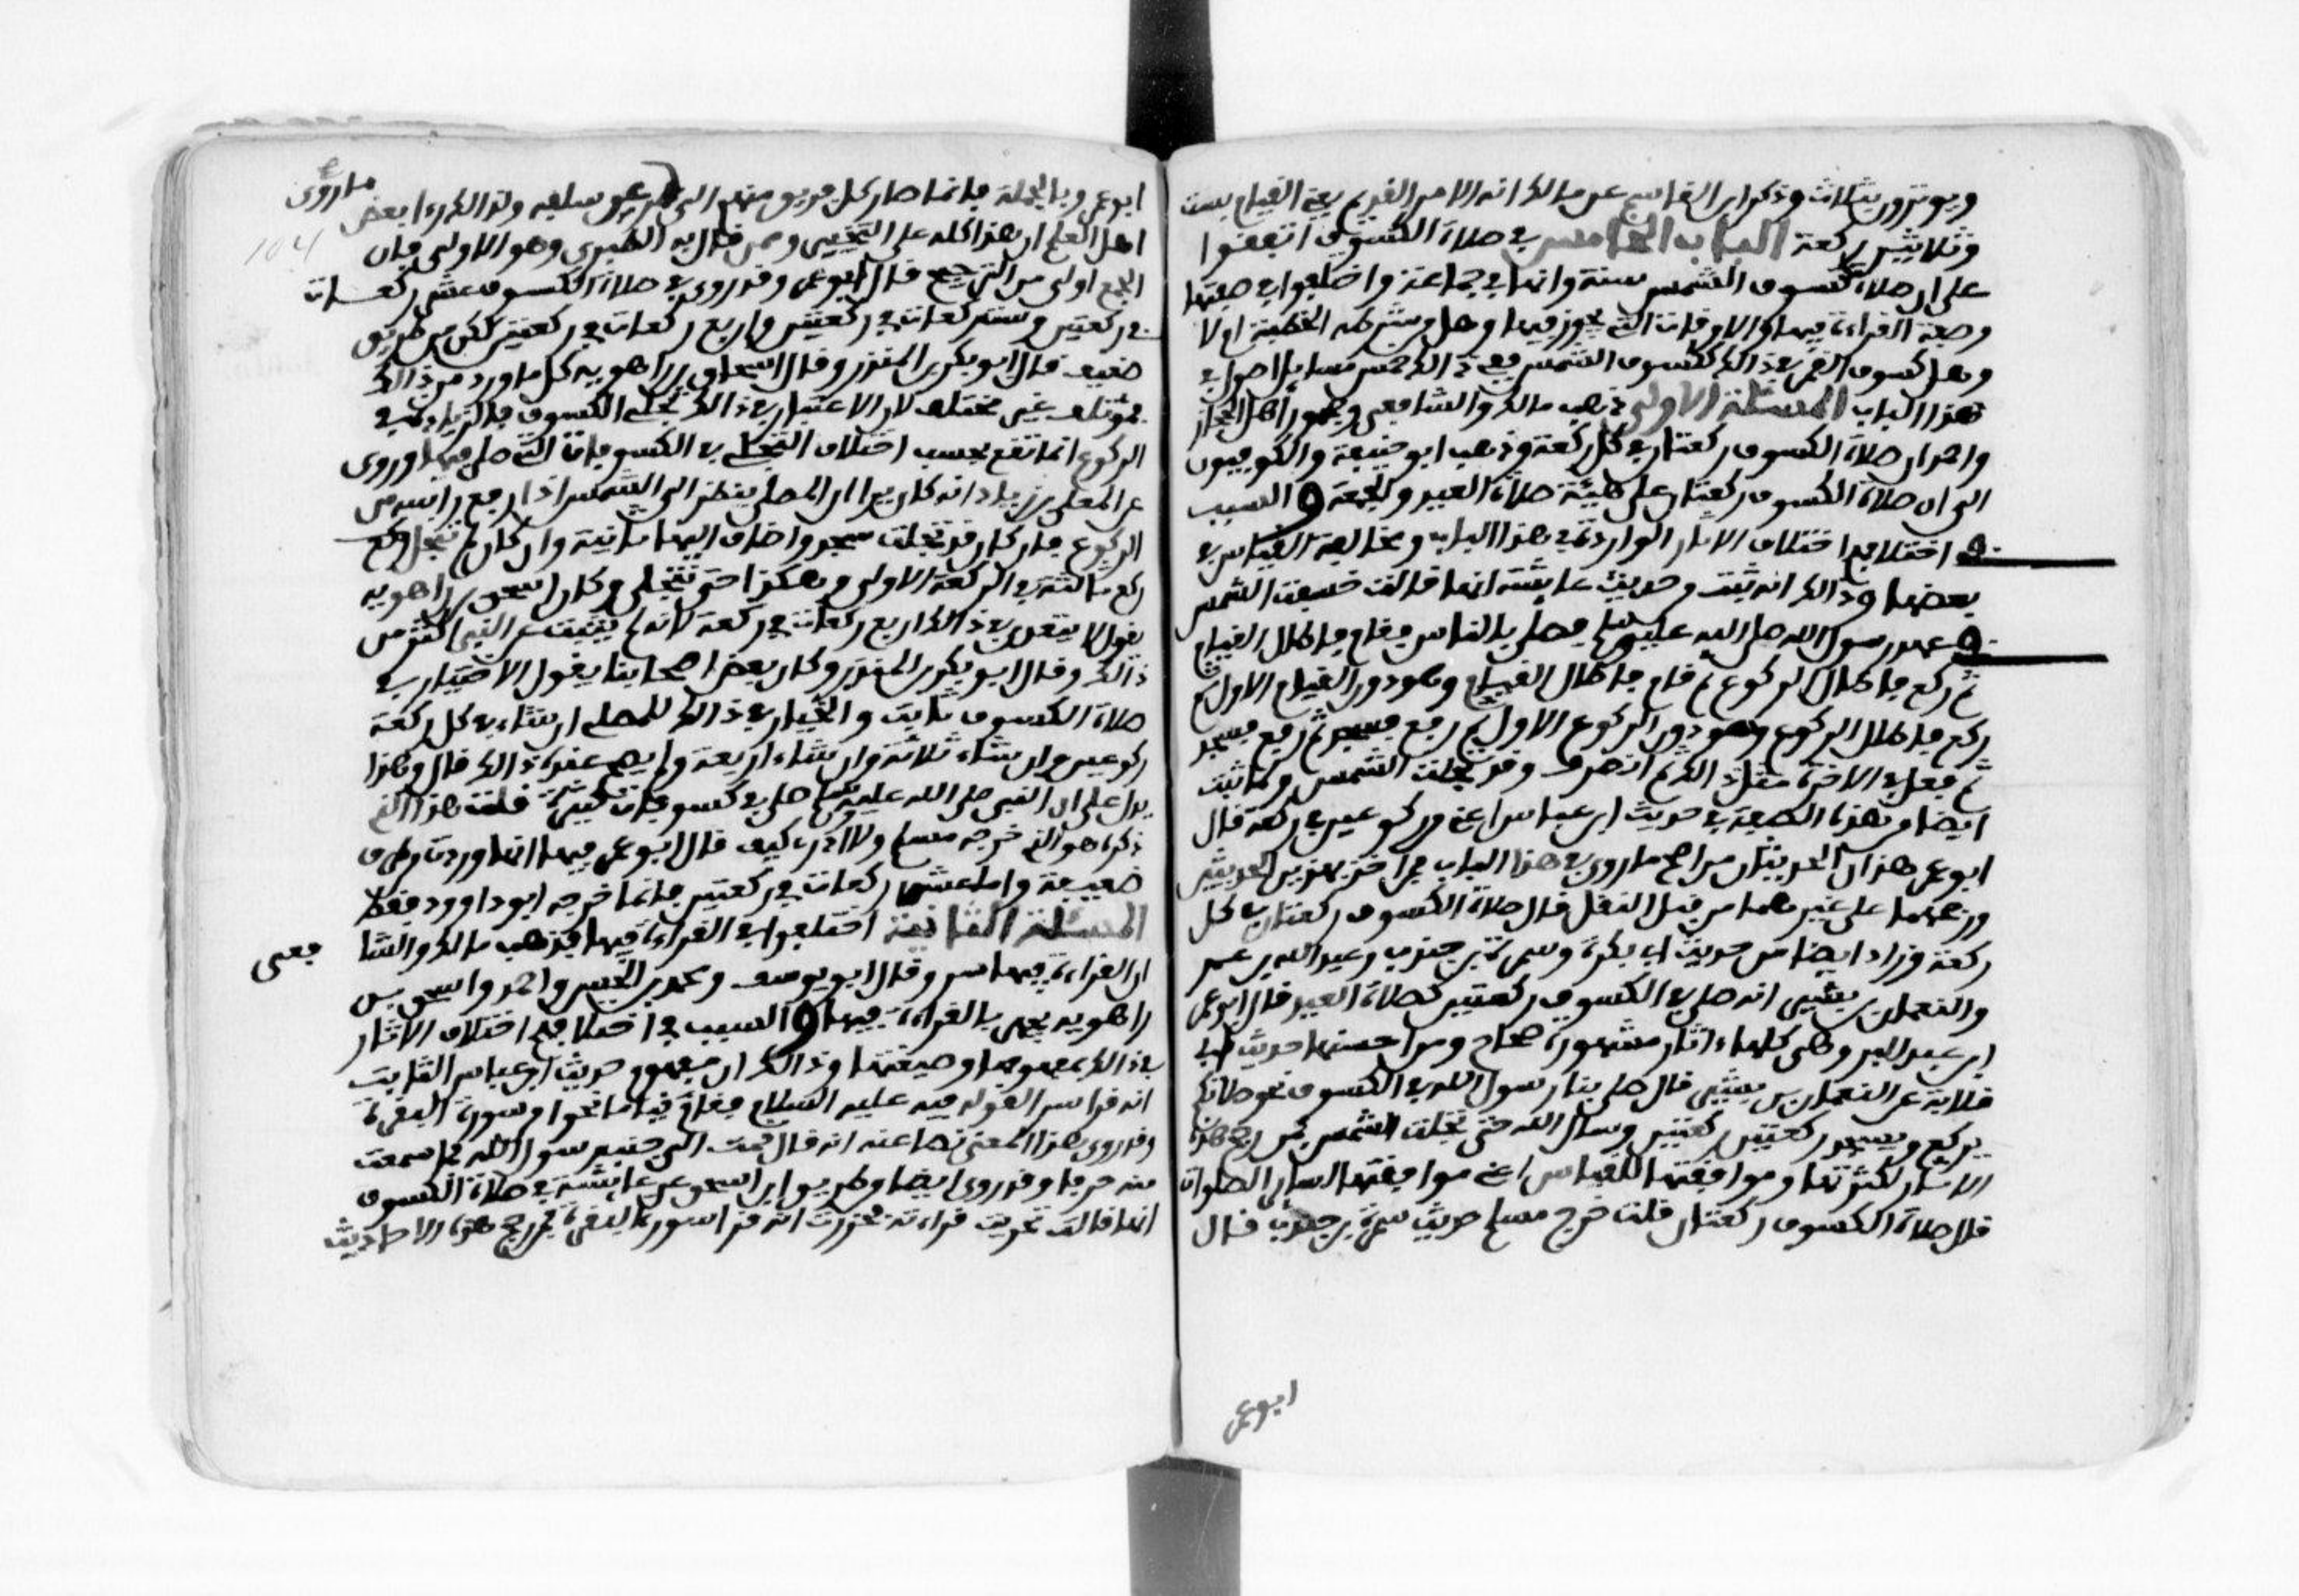 ويوترون بثلاث وذكر ابن القاسم عن مالك انه الامر القديم يعني القيام بست
وثلاثين ركعة الباب الخامس في صلاة الكسوف اتفقوا
على ان صلاة كسوف الشمس سنة وانها في جماعة واختلفوا في صفتها
وصفة القراءة فيها والاوقات التي تجوز فيها وهل من شرطها الخطبة ام لا
وهل كسوف القمر في ذالك ككسوف الشمس ففي ذالك خمس مسايل اصول في
هذا الباب المسئلة الاولى ذهب مالك والشافعي وجمهور اهل الحجاز
واحمد ان صلاة الكسوف ركعتان في كل ركعة وذهب ابو حنيفة والكوفيون
الى ان صلاة الكسوف ركعتان على هيئة صلاة العيد والجمعة والسبب
في اختلافهم اختلاف الاثار الواردة في هذا الباب ومخالفة القياس في
بعضها وذالك انه ثبت من حديث عايشة انها قالت خسفت الشمس
في عهد رسول الله صلى الله عليه وسلم فصلى بالناس فقام فاطال القيام
ثم ركع فاطال الركوع ثم قام فاطال القيام وهو دون القيام الاول ثم
ركع فاطال الركوع وهو دون الركوع الاول ثم رفع فسجد ثم رفع فسجد
ثم فعل في الاخرة مثل ذالك ثم انصرف وقد تجلت الشمس ولما ثبت
ايضا من هذه الصفة في حديث ابن عباس اعني من ركوعين في ركعة قال
ابو عمر هذان الحديثان من اصح ما روي في هذا الباب فمن اخذ بهذين الحديثين
ورجحهما على غيرهما من قبل النقل قال صلاة الكسوف ركعتان في كل
ركعة وزاد ايضا من حديث ابي بكرة وسمرة بن جندب وعبد الله بن عمر
والنعمان بن بشير انه صلى في الكسوف ركعتين كصلاة العيد قال ابو عمر
ابن عبد البر وهي كلها ءاثار مشهورة صحاح ومن احسنها حديث ابي
قلابة عن النعمان بن بشير قال صلى بنا رسول الله في الكسوف نحو صلاتكم
يركع ويسجد ركعتين ركعتين وسال الله حتى تجلت الشمس فمن رجح هذه
الاثار لكثرتها وموافقتها للقياس اعني موافقتها لساير الصلوات
قال صلاة الكسوف ركعتان قلت خرج مسلم حديث سمرة بن جندب قال
ابو عمر
ابو عمر وبالجملة فانما صار كل فريق منهم الى ما روي عن سلفه ولذالك رءا بعض
104
اهل العلم ان هذا كله على التخيير وممن قال به الطبري وهو الاولى فان
الجمع اولى من الترجيح قال ابو عمر وقد روي في صلاة الكسوف عشر ركعات
في ركعتين وست ركعات في ركعتين واربع ركعات في ركعتين لكن من طريق
ضعيف قال ابو بكر بن المنذر وقال اسحاق بن راهويه كل ما ورد من ذالك
فمؤتلف غير مختلف لان الاعتبار في ذالك تجلي الكسوف فالزيادة في
الركوع انما تقع بحسب اختلاف التجلي في الكسوفات التي صلى فيها وروي
عن المعلى بن زياد انه كان يرا ان المصلي ينظر الى الشمس اذا رفع راسه من
الركوع فان كان قد تجلت سجد واضاف اليها ثانية وان كان لم تنجل ركع
ركع ثالثة في الركعة الاولى وهكذا حتى تنجلي وكان اسحق بن راهويه
يقول لا يتعدى في ذالك اربع ركعات في ركعة لانه لم يثبت عن النبي اكثر من
ذالك وقال ابو بكر بن المنذر وكان بعض اصحابنا يقول الاختيار في
صلاة الكسوف ثابت والخيار في ذالك للمصلي ان شاء في كل ركعة
ركوعين وان شاء ثلاثة وان شاء اربعة ولم يصح عنده ذالك قال وهذا
يدل على ان النبي صلى الله عليه وسلم صلى في كسوفات كثيرة قلت هذا الذي
ذكره هو الذي خرجه مسلم ولا ادري كيف قال ابو عمر فيها انها وردت من طرق
ضعيفة واما عشر ركعات في ركعتين فانما خرجه ابو داوود فقط
المسئلة الثانية اختلفوا في القراءة فيها فذهب مالك والشافعي
ان القراءة فيها سر وقال ابو يوسف ومحمد بن الحسن واحمد واسحق بن
راهويه يجهر بالقراءة فيها والسبب في اختلافهم اختلاف الاثار
في ذالك بمفهومها وصيغتها وذالك ان مفهوم حديث ابن عباس الثابت
انه قرا سرا لقوله فيه عليه السلام فقام قياما نحوا من سورة البقرة
وقد روي هذا المعنى نصا عنه انه قال قمت الى جنب رسول الله فما سمعت
منه حرفا وقد روي ايضا من طريق ابن اسحق عن عايشة في صلاة الكسوف
انها قالت تحريت قراءته فحزرت انه قرا سورة البقرة فمن رجح هذه الاحاديث